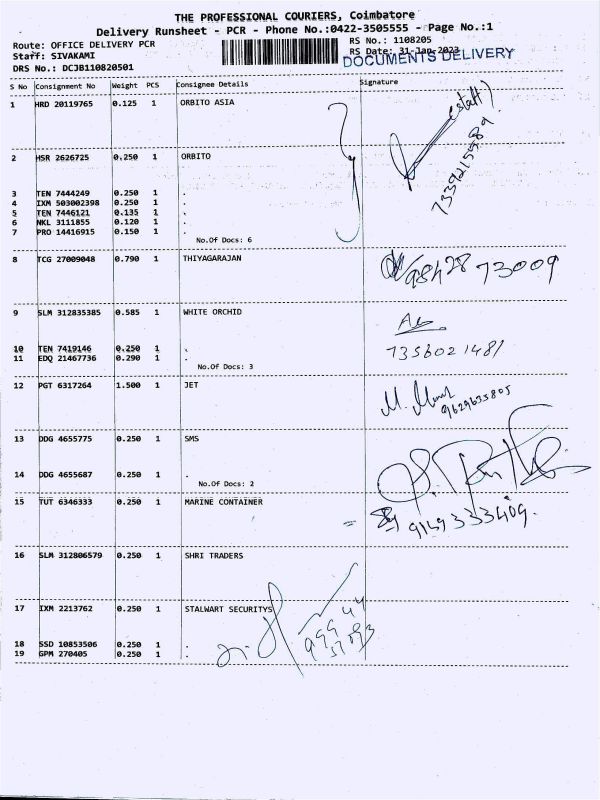 THE PROFESSIONAL COURIERS, Coimbatore
Delivery Runsheet - PCR - Phone No.:0422-3505555 - Page No.:1
Route: OFFICE DELIVERY PCR
Staff: SIVAKAMI
DRS No.: DCJB110820501
RS No.: 1108205
RS Date: 31-Jan-2023
DOCUMENTS DELIVERY
S No Consignment No Weight PCS Consignee Details Signature
1 HRD 20119765 0.125 1 ORBITO ASIA
2 HSR 2626725 0.250 1 ORBITO
(staff)
7339215989
3 TEN 7444249 0.250 1 .
4 IXM 503002398 0.250 1 .
5 TEN 7446121 0.135 1 .
6 NKL 3111855 0.120 1 .
7 PRO 14416915 0.150 1 .
No.Of Docs: 6
8 TCG 27009048 0.790 1 THIYAGARAJAN
9 SLM 312835385 0.585 1 WHITE ORCHID
10 TEN 7419146 0.250 1 .
7356021481
11 EDQ 21467736 0.290 1 .
No.Of Docs: 3
12 PGT 6317264 1.500 1 JET
9629635805
13 DDG 4655775 0.250 1 SMS
14 DDG 4655687 0.250 1 .
No.Of Docs: 2
15 TUT 6346333 0.250 1 MARINE CONTAINER
16 SLM 312806579 0.250 1 SHRI TRADERS
17 IXM 2213762 0.250 1 STALWART SECURITYS
18 SSD 10853506 0.250 1 .
19 GPM 270405 0.250 1 .